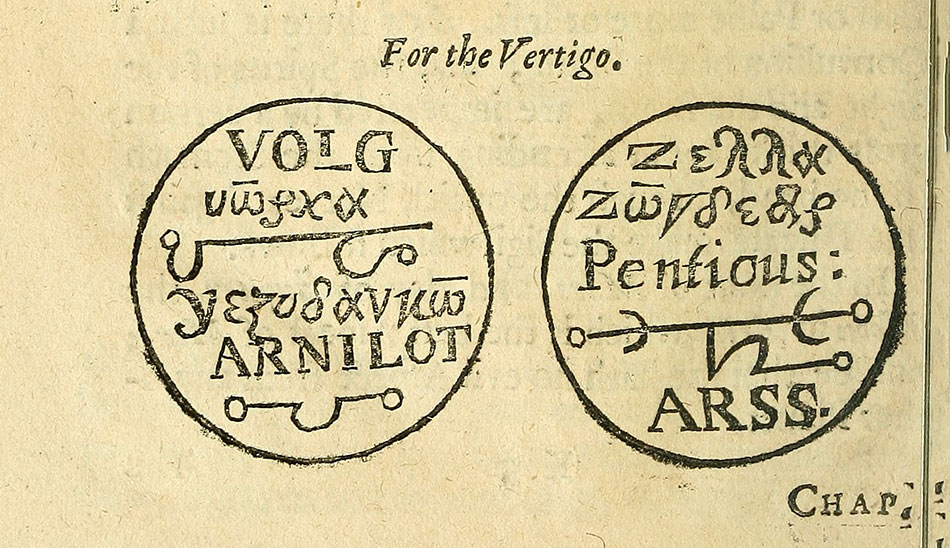 For the Vertigo.
VOLG
υω̄ρχα
γεζυδανκω̄
ARNILOT
Ζελλα
Pentious:
ARSS.
CHAP.